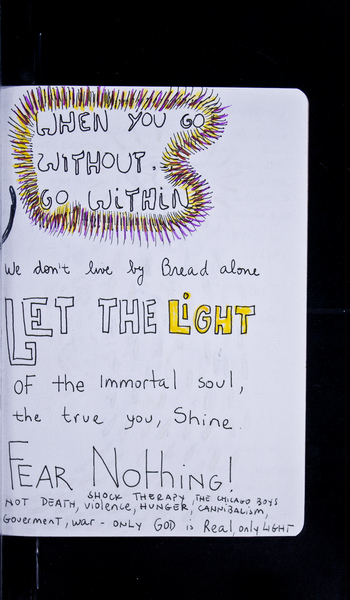 WHEN YOU GO
WITHOUT.
GO WITHIN
We don't live by Bread alone
LET THE LIGHT
OF the Immortal soul,
the true you, Shine.
FEAR NOTHING!
SHOCK THERAPY, THE CHICAGO BOYS
NOT DEATH, violence, HUNGER, CANNIBALISM,
Goverment, war - ONLY GOD is Real, only LIGHT